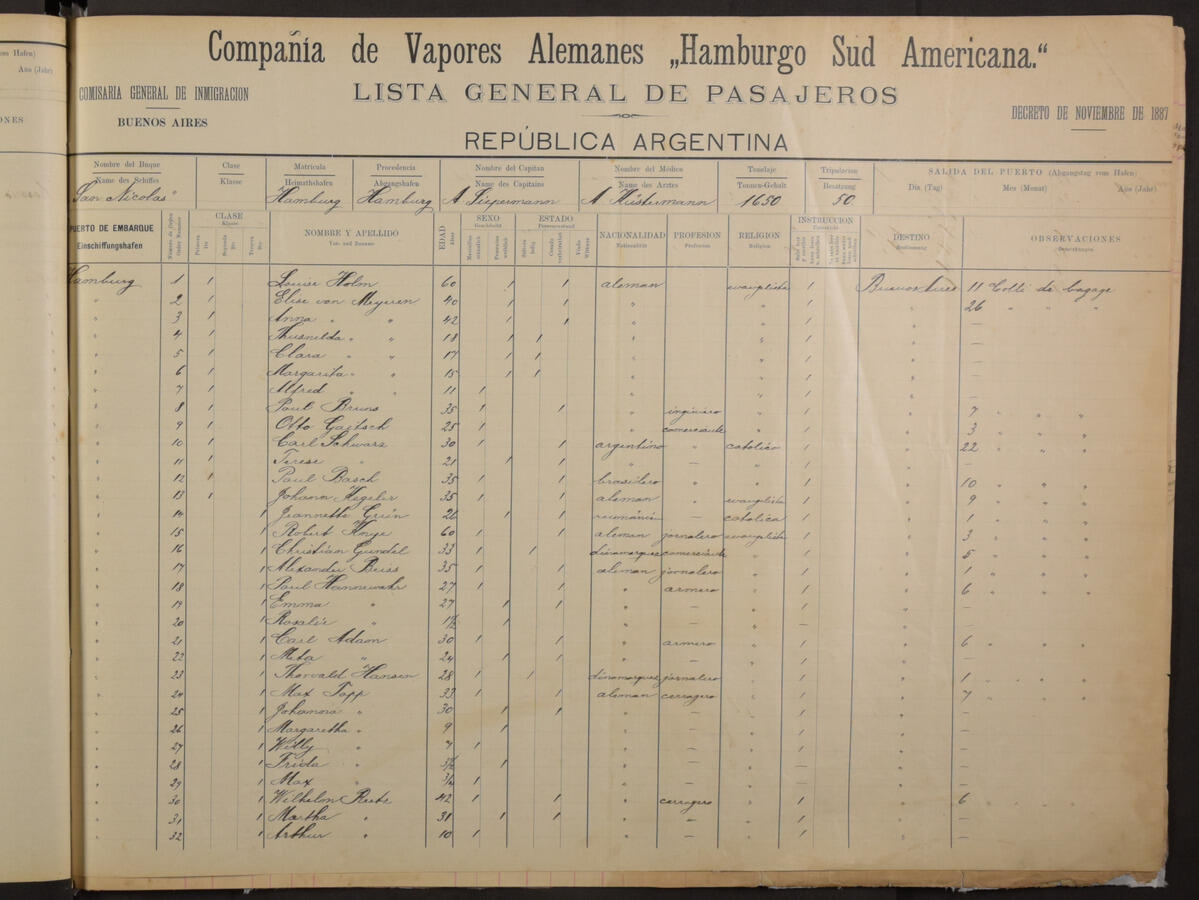 om Hafen)
Año (Jahr)
ONES
Compañía de Vapores Alemanes „Hamburgo Sud Americana.“
COMISARIA GENERAL DE INMIGRACION
BUENOS AIRES
LISTA GENERAL DE PASAJEROS
REPÚBLICA ARGENTINA
DECRETO DE NOVIEMBRE DE 1887
Nombre del Buque Clase Matrícula Procedencia Nombre del Capitan Nombre del Médico Tonelaje Tripulacion SALIDA DEL PUERTO (Abgangstag vom Hafen)
Name des Schiffes Klasse Heimathshafen Abgangshafen Name des Capitains Name des Arztes Tonnen-Gehalt Besatzung Dia (Tag) Mes (Monat) Año (Jahr)
San Nicolas Hamburg Hamburg A Siepermann A Küstermann 1650 50
PUERTO DE EMBARQUE Einschiffungshafen CLASE Klasse NOMBRE Y APELLIDO Vor- und Zuname EDAD Alter SEXO Geschlecht ESTADO NACIONALIDAD Nationalität PROFESION Profession RELIGION Religion INSTRUCCION DESTINO Bestimmung OBSERVACIONES Bemerkungen
Hamburg 1 1 Louise Holm 60 1 1 aleman evangelista 1 Buenos Aires 11 Colli de bagage
" 2 1 Elise von Meyeren 40 1 1 " " 1 " 26 " " "
" 3 1 Anna " " 42 1 1 " " 1 " —
" 4 1 Thusnelda " " 18 1 1 " " 1 " —
" 5 1 Clara " " 17 1 1 " " 1 " —
" 6 1 Margarita " " 15 1 1 " " 1 " —
" 7 1 Alfred " " 11 1 " " 1 " —
" 8 1 Paul Bruns 35 1 1 " ingeniero " 1 " 7 " " "
" 9 1 Otto Gaetsch 25 1 " comerciante " 1 " 3 " " "
" 10 1 Carl Schwarz 30 1 1 argentino " catolico 1 " 22 " " "
" 11 1 Terese " 21 1 1 " — " 1 " —
" 12 1 Paul Basch 35 1 1 brasilero " " 1 " 10 " " "
" 13 1 Johann Hegeler 35 1 1 aleman " evangelista 1 " 9 " " "
" 14 1 Jeannette Grün 26 1 1 — catolica 1 " 1 " " "
" 15 1 Robert 60 1 1 aleman jornalero evangelista 1 " 3 " " "
" 16 1 Christian Gundel 33 1 1 dinamarques comerciante " 1 " 5 " " "
" 17 1 Alexander Beiss 35 1 1 aleman jornalero " 1 " 1 " " "
" 18 1 Paul Hannewahr 27 1 1 " armero " 1 " 6 " " "
" 19 1 Emma " 27 1 1 " — " 1 " —
" 20 1 Rosalie " 1½ 1 " — " — " —
" 21 1 Carl Adam 30 1 1 " armero " 1 " 6 " " "
" 22 1 Meta " 24 1 1 " — " 1 " —
" 23 1 Thorvald Hansen 28 1 1 dinamarques jornalero " 1 " 1 " " "
" 24 1 Max Topp 33 1 1 aleman cerragero " 1 " 7 " " "
" 25 1 Johanna " 30 1 1 " — " 1 " —
" 26 1 Margaretha " 9 1 " — " 1 " —
" 27 1 Willy " 7 1 " — " 1 " —
" 28 1 Frida " 1 " — " — " —
" 29 1 Max " ¾ 1 " — " — " —
" 30 1 Wilhelm 42 1 1 " cerragero " 1 " 6
" 31 1 Martha " 31 1 1 " — " 1 " —
" 32 1 Arthur " 10 1 " — " 1 " —